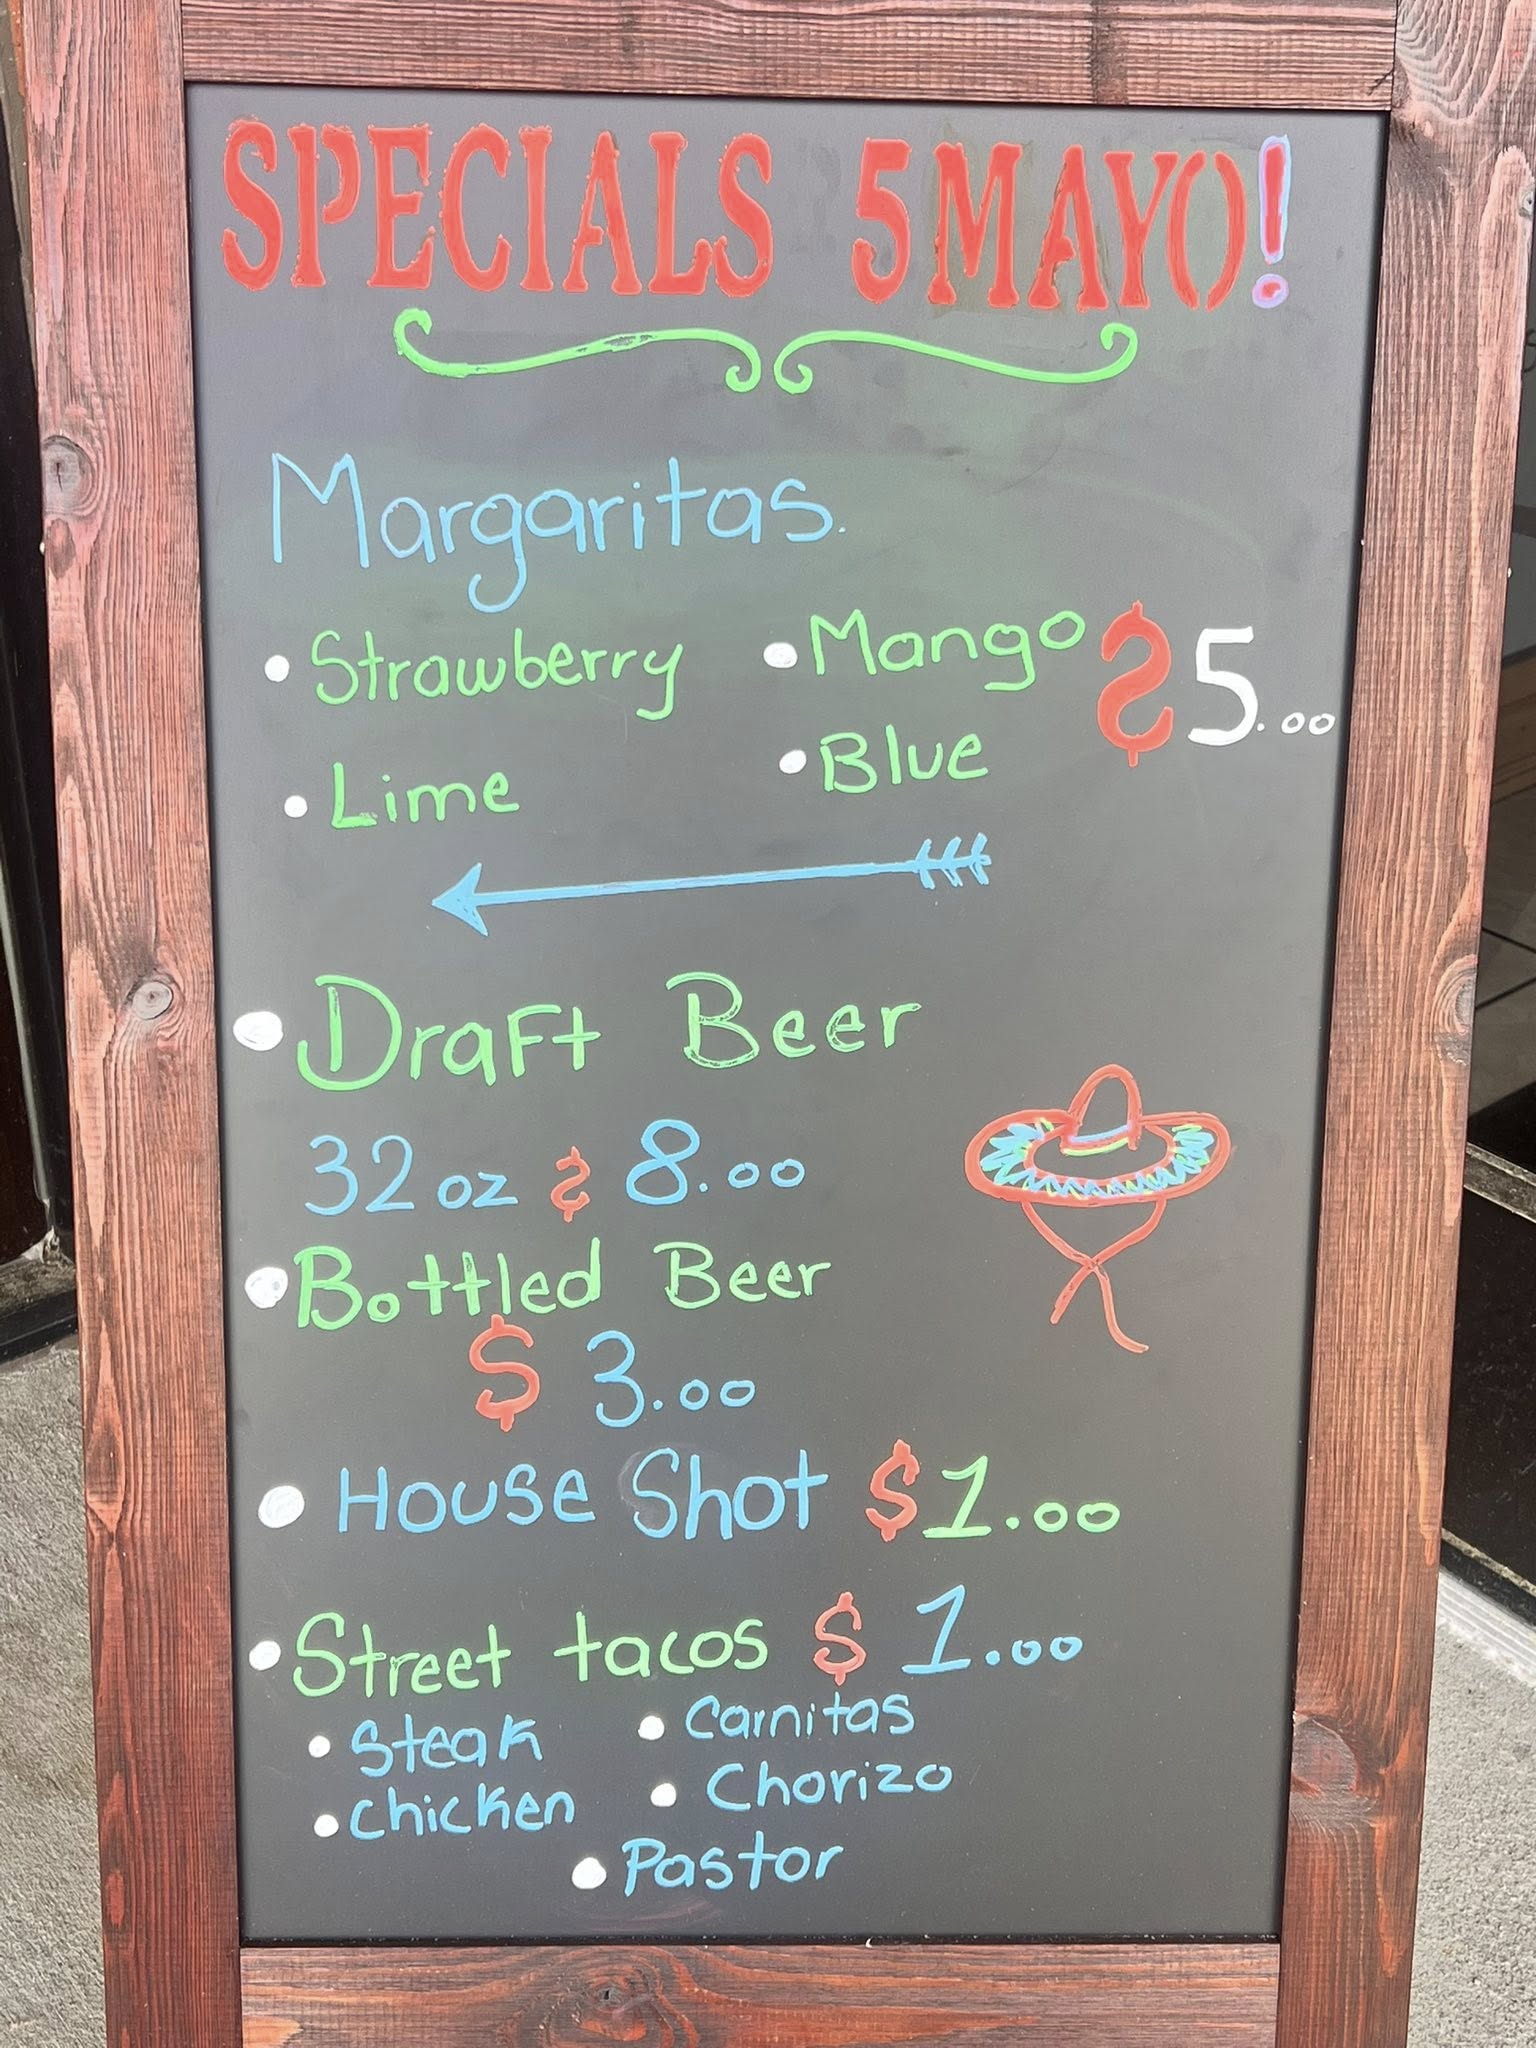 SPECIALS 5 MAYO!
Margaritas.
• Strawberry • Mango $5.00
• Lime • Blue
• Draft Beer
32 oz $ 8.00
• Bottled Beer
$ 3.00
• House Shot $1.00
• Street tacos $ 1.00
• Steak • Carnitas
• Chicken • Chorizo
• Pastor